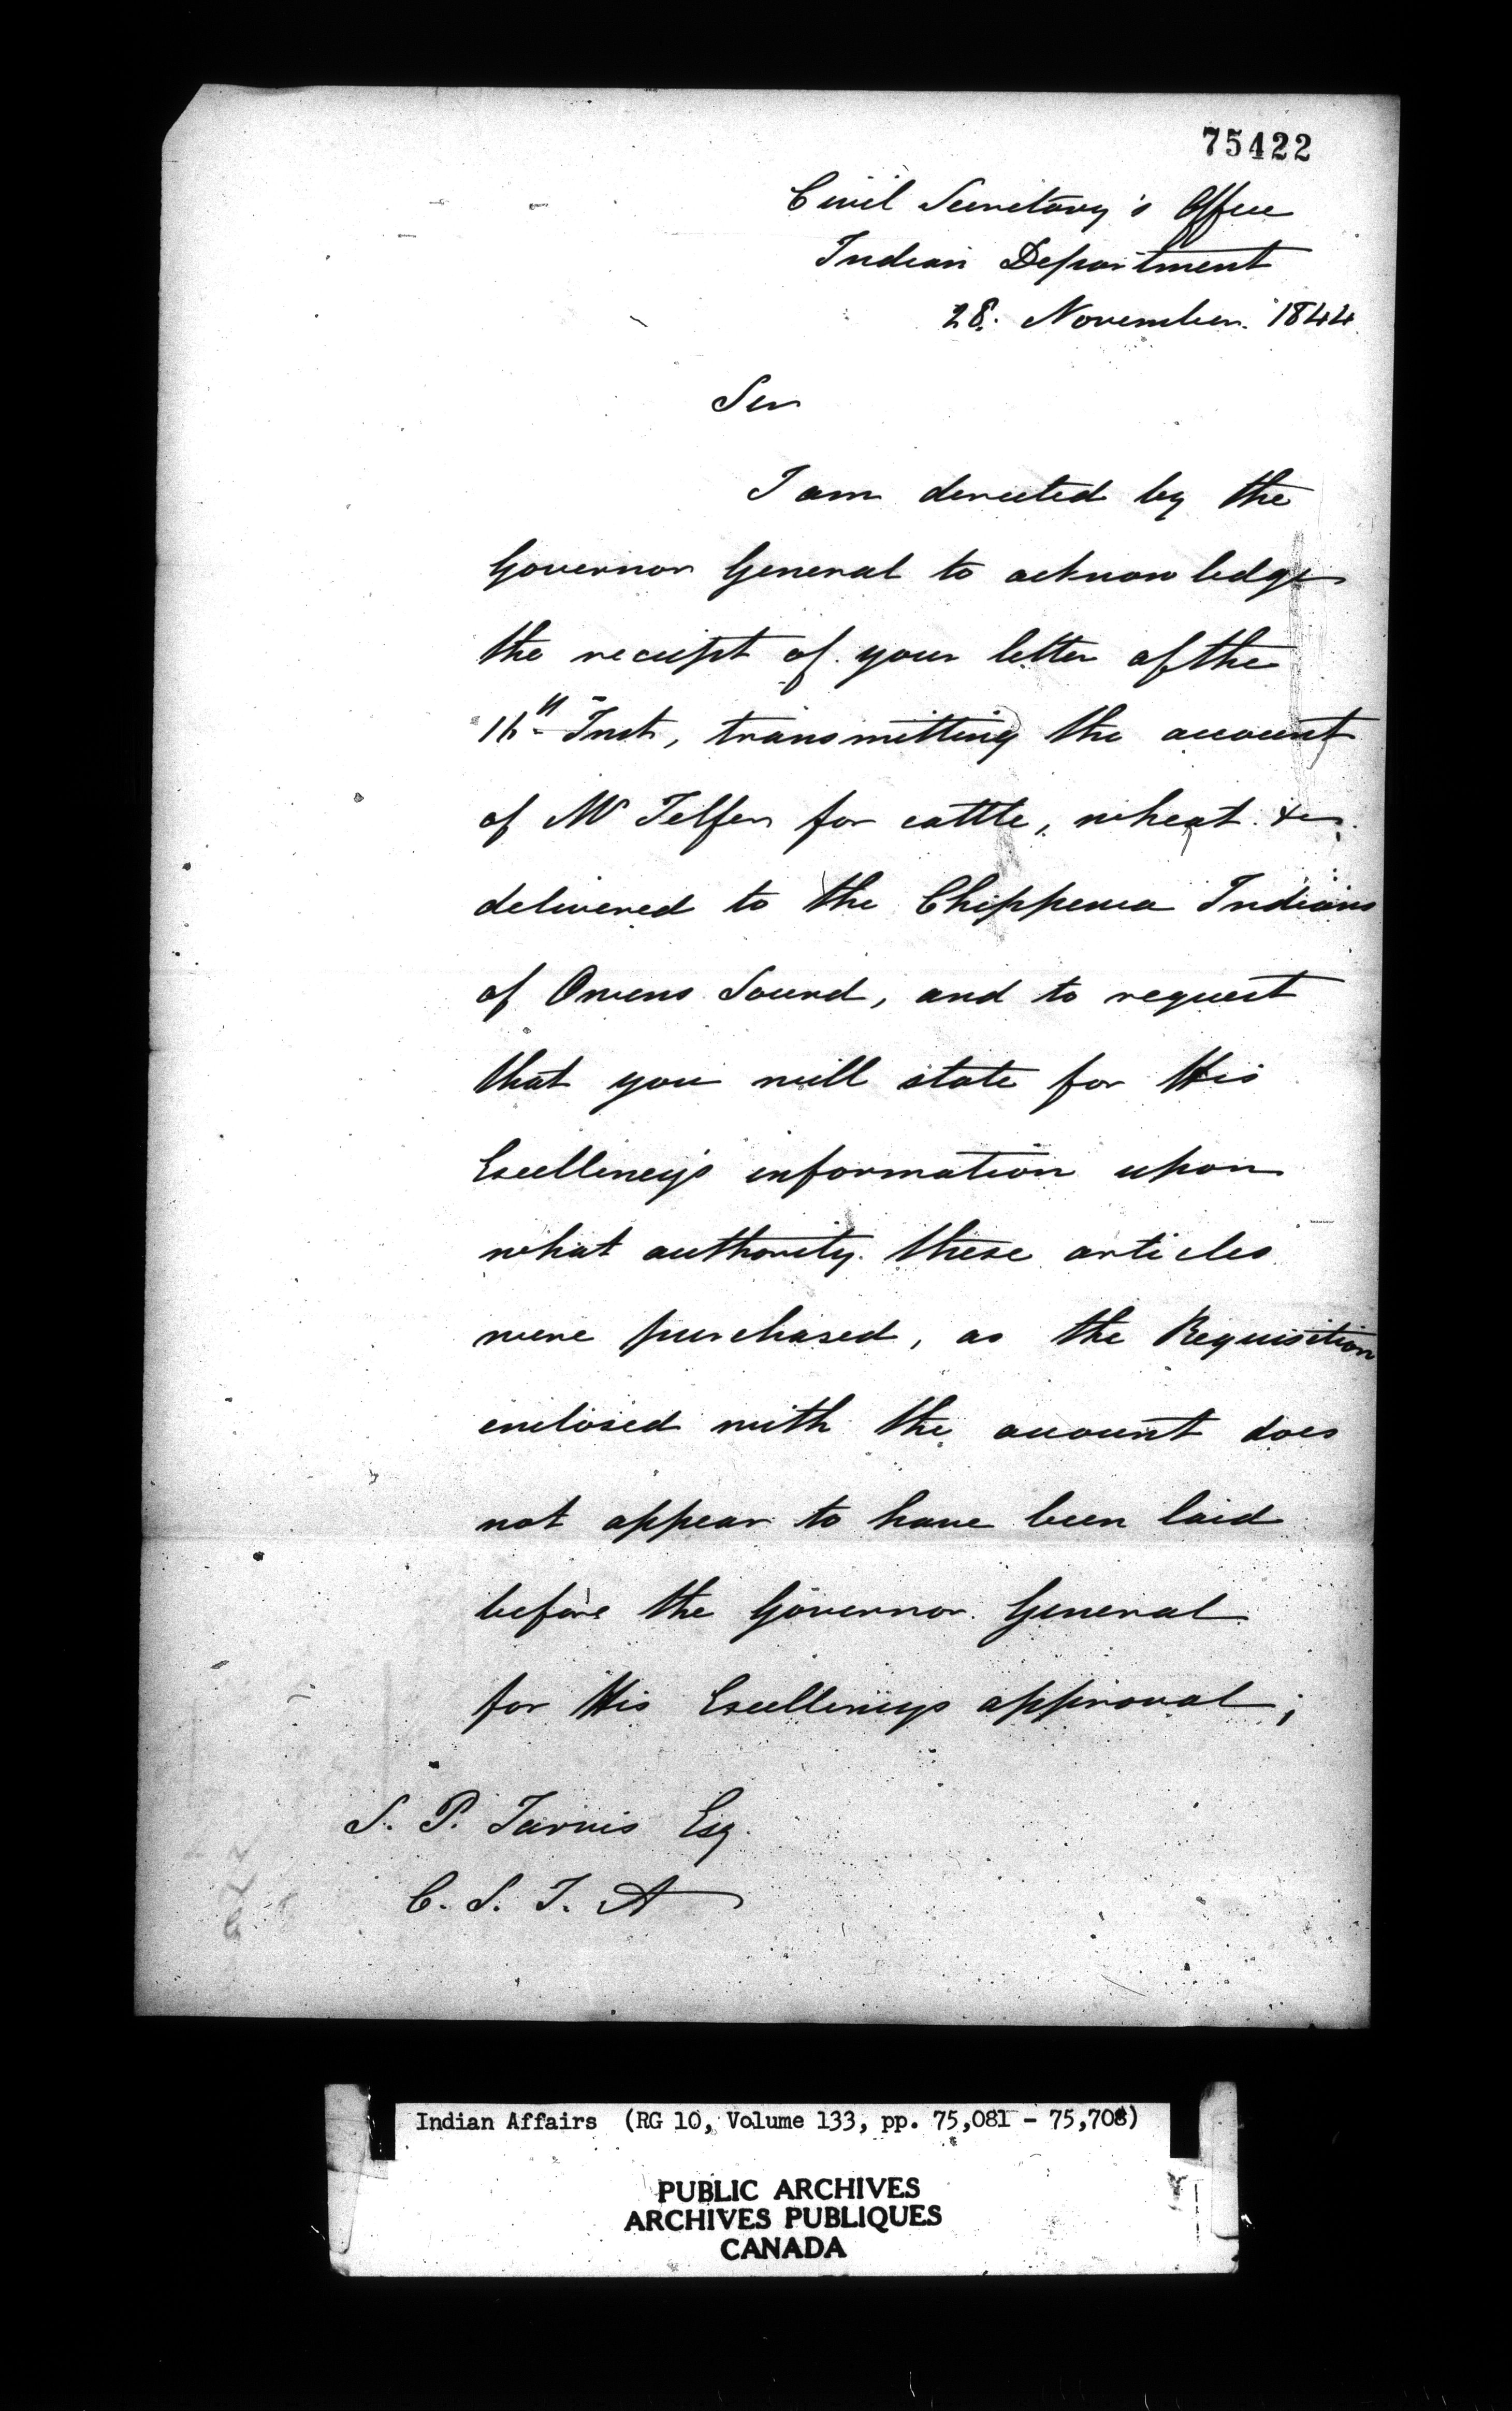 75422
Civil Secretary's Office
Indian Department
28. November. 1844
Sir
I am directed by the
Governor General to acknowledge
the receipt of your letter of the
Inst, transmitting the account
of Mr Telfer for cattle, wheat &c.
delivered to the Chippewa Indians
of Owens Sound, and to request
that you will state for His
Excellency's information upon
what authority these articles
were purchased, as the Requisition
enclosed with the account does
not appear to have been laid
before the Governor General
for His Excellencys approval;
S. P. Jarvis Esq.
C. S. I. A
Indian Affairs (RG 10, Volume 133, pp. 75,081 - 75,708)
PUBLIC ARCHIVES
ARCHIVES PUBLIQUES
CANADA